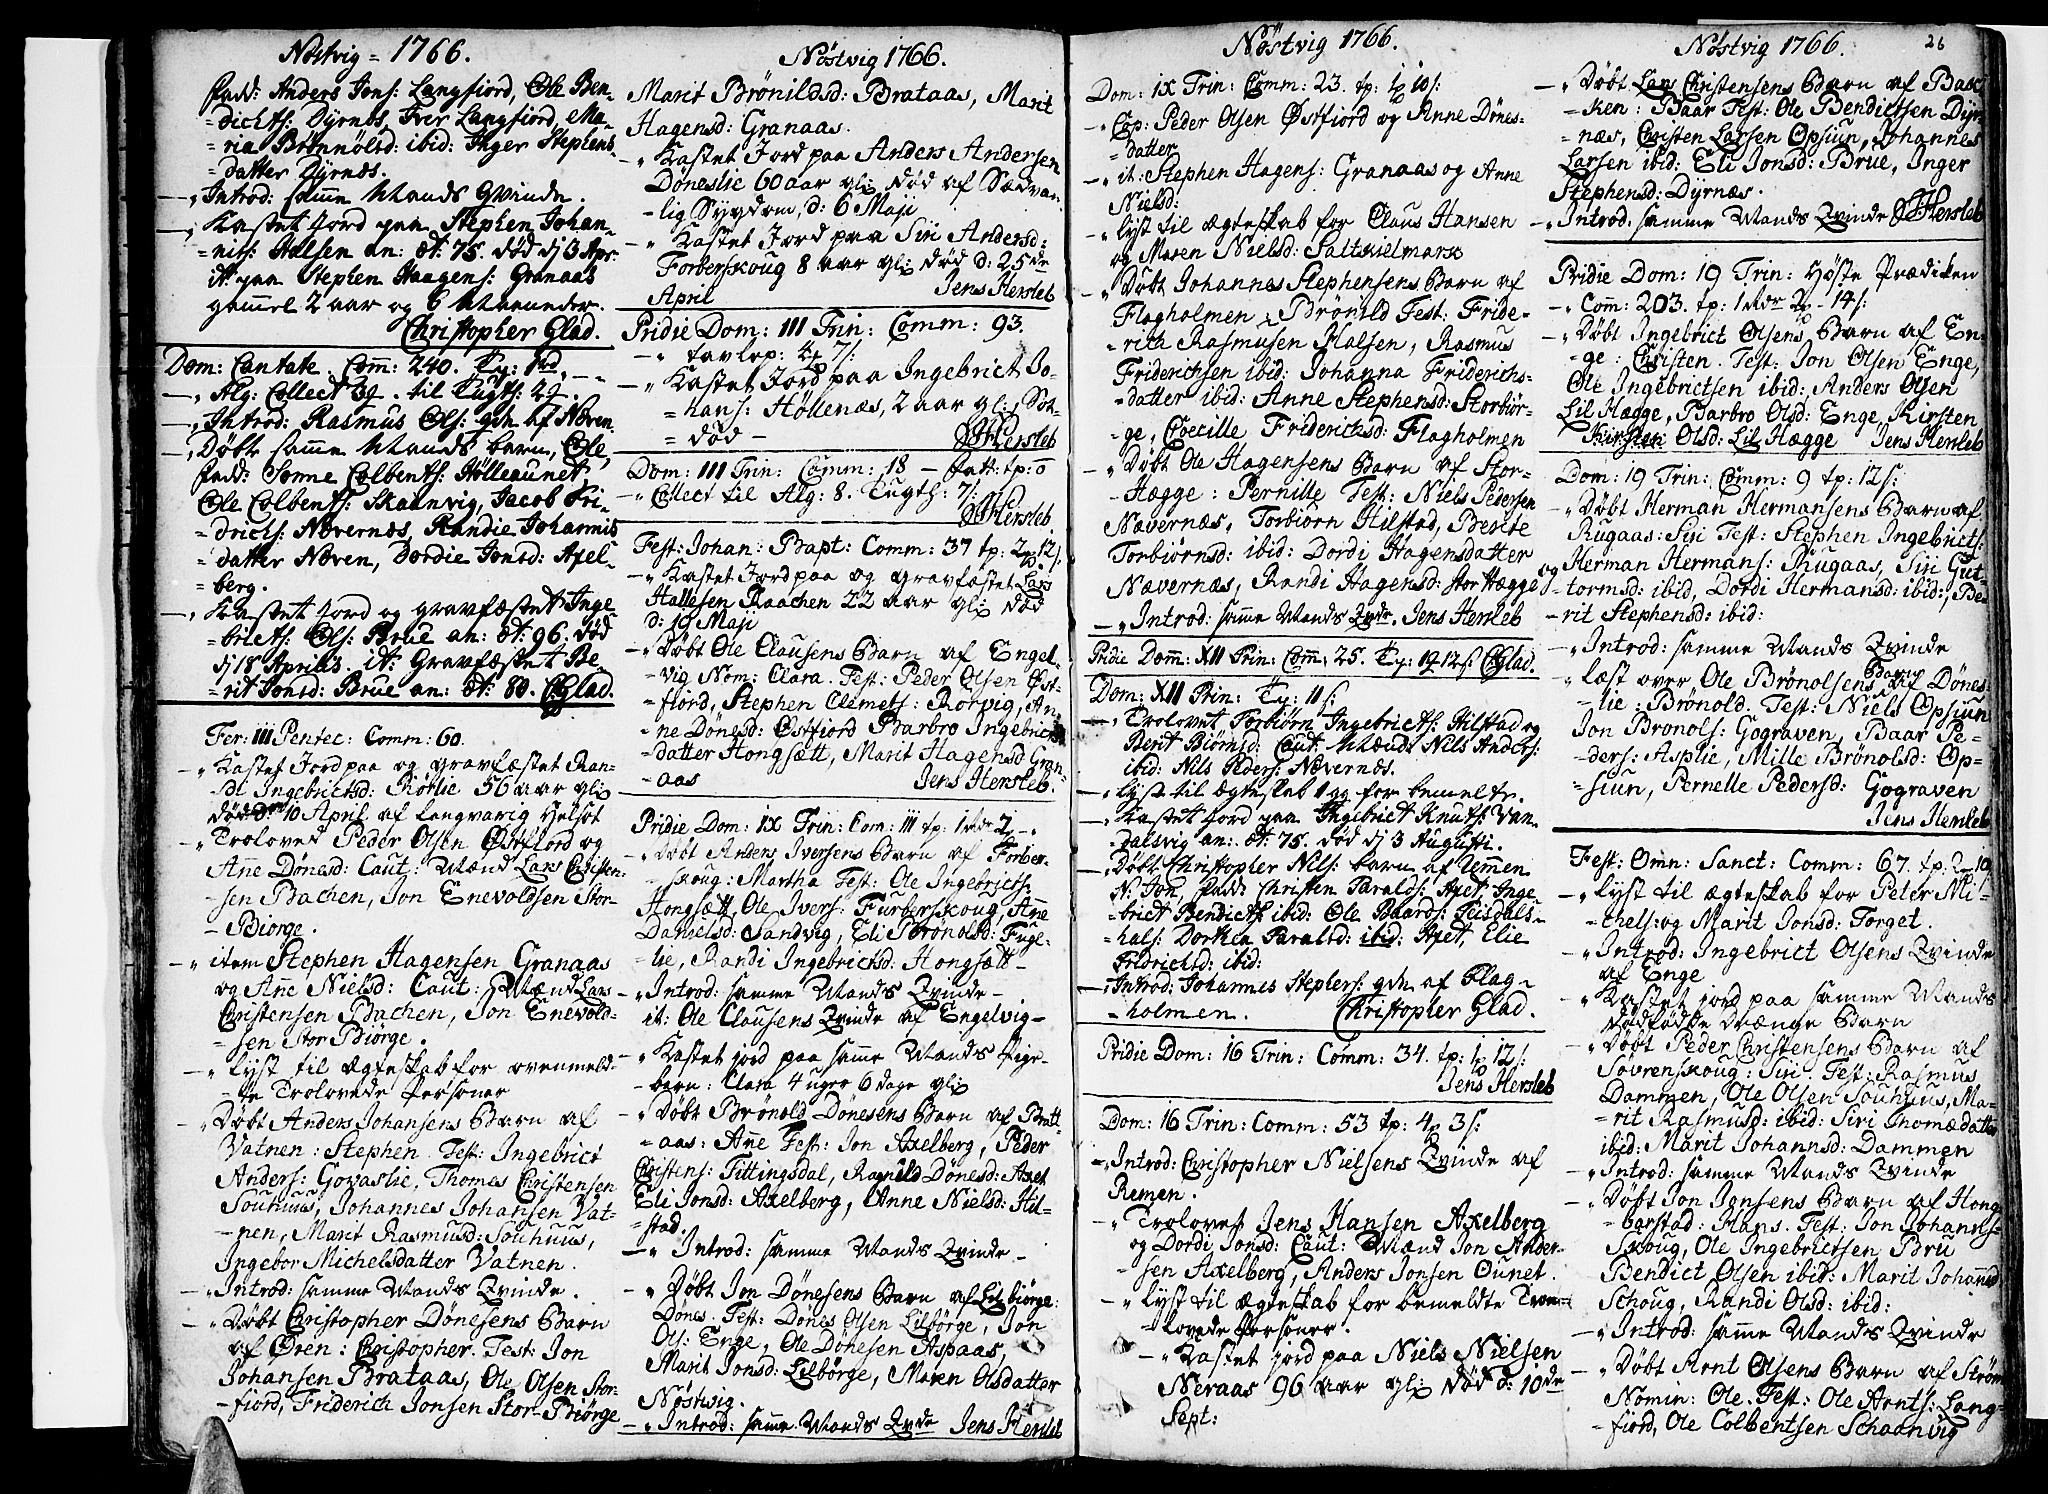 Nöstvig = 1766.
fadd: Anders Jons: Langfiord, Ole Ben-
= dichts: Dyrnes, Iver Langfiord, Ma-
= ria Brönnolsd: ibid: Inger Stephens
= datter Dyrnes.
—„ Introd: samme Mands Qvinde.
—„ Kastet jord paa Stephen Johan-
= nis: Halsen an: æt: 75. död d; 3 Apr:
it: paa Stephen Haagens: Granaas
gammel 2 aar og 6 Maaneder.
Christopher Glad.
Dom: Cantate. Com: 240.
—„ Alg: Collect 39. til Tugts: 29.
—„ Introd: Rasmus Ols: qvh. af Noven.
—„ Döbt samme Mands barn, Ole,
fadd: Sonne Colbents: Hölleaunet,
Ole Colbents: Skaanvig, Jacob Fri-
= drichs: Nævernes, Randie Johannis
= datter Noven, Dordie Jonsd: Axel-
= berg.
—„ Kastet jord og gravfæstet Inge-
= bricts: Ols: Brue an: æt: 96. död
d; 18 Aprilis. it: Gravfæstet Be-
= rit Jonsd: Brue an: æt: 80. CGlad.
Fer: III Pentec: Comm: 60.
—„ Kastet Jord paa og gravfæstet Ran-
di Ingebrictsd: Rötlie 56 aar gl:
död d: 10 April af langvarig Helsot
—„ Trolovet Peder Olsen Østfiord og
Ane Dönesd: Caut: Mænd Lars Christen-
sen Bachen, Jon Enevoldsen Stor-
- Biörge.
—„ item Stephen Hagensen Granaas
og Ane Nielsd: Caut: Mænd Lars
Christensen Bachen, Jon Enevold-
= sen Stor Biörge.
—„ lyst til ægteskab for ovenmeld-
- te Trolovede Personer
—„ Döbt Anders Johansens Barn af
Vatnen: Stephen. Test: Ingebrict
Anders: Govaslie, Thomes Christensen
Souhuus, Johannes Johansen Vat-
- nen, Marit Rasmusd: Souhuus,
Ingebor Michelsdatter Vatnen.
—„ Introd: samme Mands Qvinde.
—„ Döbt Christopher Dönesens Barn
af Ören: Christopher. Test: Jon
Johansen Brataas, Ole Olsen Stor-
- fiord, Friderich Jonsen Stor-Biörge
Nöstvig 1766.
Marit Brönildsd: Brataas, Marit
Hagensd: Granaas.
—„ Kastet Jord paa Anders Andersen
Döneslie 60 aar gl: död af Sædvan-
- lig Sygdom, d: 6 Maji
—„ Kastet Jord paa Siri Andersd:
Forberskoug 8 aar gl: död d: 25de
April Jens Hersleb
Pridie Dom: III Trin: Comm: 93.
—„ tavlep: 4 7/:
—„ Kastet Jord paa Ingebrict Jo-
= hans: Höllenæs, 2 aar gl:, Sot-
= död — JHersleb
Dom: III Trin: Comm: 18 — fatt: tp: 0
—„ Collect til Alg: 8. Tugth: 7/:
JHersleb.
Fest: Johan: Bapt: Comm: 37 tp: 2 12/:
—„ Kastet Jord paa og gravfæstet Lars
Hallesen Raachen 22 aar gl: död
d: 19 Maji
—„ Döbt Ole Clausens Barn af Engel-
- vig Nom: Clara. Test: Peder Olsen Öst-
- fiord, Stephen Clemets: Rorvig, An-
- ne Dönesd: Östfiord Barbro Ingebricts
- datter Hongsætt, Marit Hagensd Gran-
- aas Jens Hersleb.
Pridie Dom: IX Trin: Com: III tp: 1 rdr 2 -.
—„ Döbt Anders Iversens Barn af Forber-
- skoug: Martha Test: Ole Ingebricts:
Hongsætt, Ole Ivers: Furberskoug, Ane
Danielsd: Sandvig, Eli Brönolsd: Fuge-
- lie, Randi Ingebrictsd: Hongsætt —
—„ Introd: samme Mands Qvinde —
it: Ole Clausens Qvinde af Engelvig —
—„ Kastet jord paa samme Mands Pige-
- barn: Clara 4 uger 6 dage gl:
—„ Döbt Brönold Dönesens Barn af Bratt-
= aas: Ane Test: Jon Axelberg, Peder
Christens: Fittingsdal, Ragnild Dönesd: Axet
Eli Jonsd: Axelberg, Anne Nielsd: Hil-
= stad.
—„ Introd: samme Mands Qvinde —
—„ Döbt Jon Dönesens Barn af Lilbiörge:
Dönes. Test: Dönes Olsen Lilbörge, Jon
Ols: Enge, Ole Dönesen Aspaas,
Marit Jonsd: Lilbörge, Maren Olsdatter
Nöstvig.
—„ Introd: samme Mands Qvde Jens Hersleb
Nöstvig 1766.
Dom: IX Trin: Comm: 23. tp: 1 10/:
—„ Cop: Peder Olsen Østfiord og Anne Dönes-
= datter
—„ it: Stephen Hagens: Granaas og Anne
Nielsd:
—„ lyst til ægteskab for Claus Hansen
og Maren Nielsd: Saltkielmark
—„ Döbt Johannes Stephensens Barn af
Flagholmen: Brönild Test: Fride-
- rica Rasmusen Halsen, Rasmus
Friderichsen ibid: Johanna Friderichs-
- datter ibid: Anne Stephensd: Storbiör-
- ge, Coecille Friderichsd: Flagholmen
—„ Döbt Ole Hagensens Barn af Stor-
- Hægge: Pernille Test: Niels Pedersen
Nævernæs, Torbiörn Hilstad, Berite
Torbiörnsd: ibid: Dordi Hagensdatter
Nævernæs, Randi Hagensd: Stor Hægge
—„ Introd: samme Mands Qvde. Jens Hersleb
Pridie Dom: XII Trin: Com: 25. Ty: 19 12/: CGlad.
Dom: XII Trin: Ty: 11/:
—„ Trolovet Torbiörn Ingebricts: Hilstad og
Berit Biörnsd: Caut: Mænd: Nils Anders:
ibid: Nils Peders: Nævernæs.
—„ Lyst til ægteskab 1 gg for bemelte.
—„ Kastet jord paa Ingebrict Knuts: Van-
dalsvig an: æt: 75. död d; 3 Augusti.
—„ Döbt Christopher Nils: barn af Remmen
N: Jon, fadd: Christen Paralds: Axet, Inge-
= brict Bendicts: ibid: Ole Baards: Feisdals-
= hals: Dorthea Paralsd: ibid: Axet, Elie
Fridrichsd: ibid:
—„ Introd: Johannes Stephens: qvh af Flag-
= holmen. Christopher Glad.
Pridie Dom: 16 Trin: Comm: 34. tp: 1 12/:
Jens Hersleb
Dom: 16 Trin: Comm: 53 tp: 4 3/:
—„ Introd: Christopher Nielsens Qvinde af
Remen.
—„ Trolovet Jens Hansen Axelberg
og Dordi Jonsd: Caut: Mænd Jon Ander-
- sen Axelberg, Anders Jonsen Ounet.
—„ lyst til ægteskab for bemeldte Troe-
- lovede Personer.
—„ Kastet jord paa Niels Nielsen
Neraas 96 aar gl: död d: 10de
Sept:
Nöstvig 1766. 26
—„ Döbt Lars Christensens Barn af Bak-
- ken: Baar Test: Ole Bendictsen Dyr-
- næs, Christen Larsen Opsiun, Johannes
Larsen ibid: Eli Jonsd: Brue, Inger
Stephensd: Dyrnæs.
—„ Introd: samme Mands Qvinde JHersleb
Pridie Dom: 19 Trin: Höste Prædiken
—„ Com: 203. tp: 1 rdr 2 - 14/:
—„ Döbt Ingebrict Olsens Barn af En-
- ge: Christen. Test: Jon Olsen Enge,
Ole Ingebrictsen ibid:, Anders Olsen
Lil Hægge, Barbro Olsd: Enge, Kirsten
Olsd: Lil Hægge Jens Hersleb
Dom: 19 Trin: Comm: 9 tp: 12/:
—„ Döbt Herman Hermansens Barn af
Rugaas: Siri Test: Stephen Ingebricts:
og Herman Hermans: Rugaas, Siri Gut-
- tormsd: ibid, Dordi Hermansd: ibid:, Be-
rit Stephensd: ibid:
—„ Introd: samme Mands Qvinde
—„ læst over Ole Brönolsens Barn af Dönes-
- lie: Brönold. Test: Niels Opsiun
Jon Bronols: Gograven, Baar Pe-
- ders: Asplie, Mille Brönolsd: Op-
= siun, Pernelle Pedersd: Gograven
Jens Hersleb
Fest: Omn: Sanct: Comm: 67. tp: 2 - 10/:
—„ lyst til ægteskab for Peter Mi-
- chels: og Marit Jonsd: Torget.
—„ Introd: Ingebrict Olsens Qvinde
af Enge
—„ Kastet jord paa samme Mands
Dödfödde Drænge Barn
—„ Döbt Peder Christensens Barn af
Sövrenskoug: Siri. Test: Rasmus
Dammen, Ole Olsen Souhuus, Ma-
- rit Rasmusd: ibid: Siri Thomædatter
ibid: Marit Johannsd: Dammen
—„ Introd: samme Mands Qvinde
—„ Döbt Jon Jonsens Barn af Hong-
- barstad: Hans. Test: Jon Johanns-
Skoug, Ole Ingebrictsen Bru
Bendict Olsen ibid: Marit Johannsd
Schoug, Randi Olsd: ibid:
—„ Introd: samme Mands Qvinde
—„ Döbt Arnt Olsens Barn af Ström
Nomin: Ole. Test: Ole Arnts: Lang-
- fiord, Ole Colbentsen Schaanvig